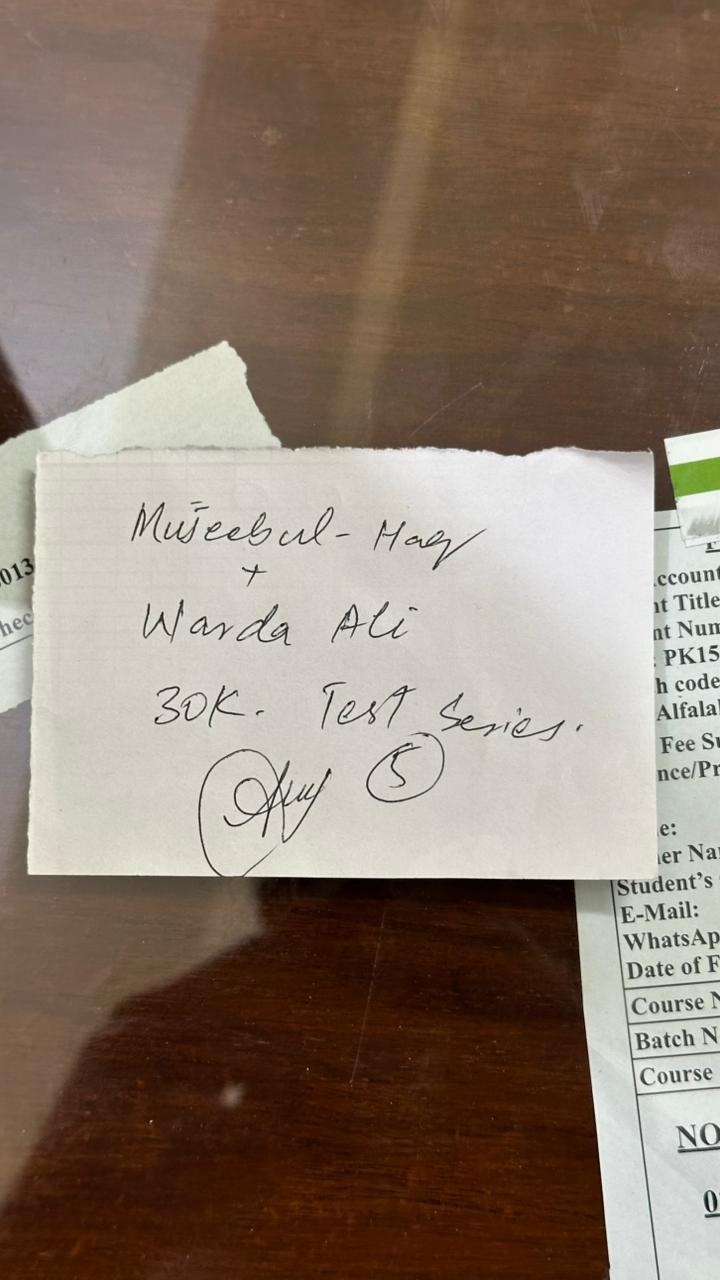 013
hec
Mujeebul-Haq
+
Warda Ali
30K. Test Series.
5
ccount
nt Title
nt Num
: PK15
h code
Alfalal
Fee Su
nce/Pr
e:
er Na
Student's
E-Mail:
WhatsAp
Date of F
Course N
Batch N
Course
NO
0